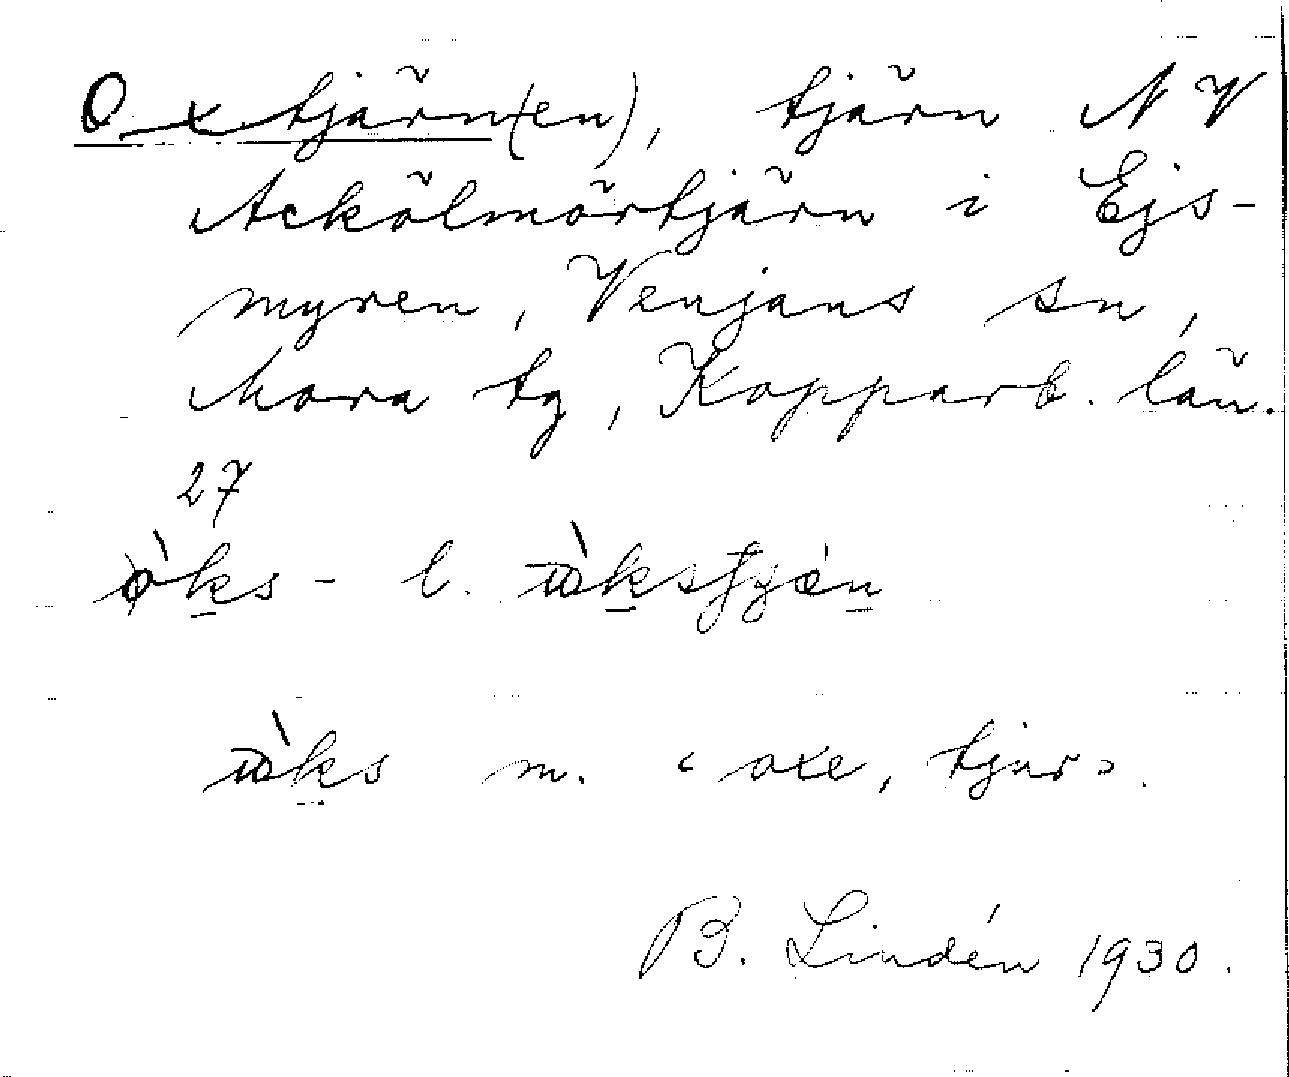 Oxtjärn(en), tjärn NV
Ackölmörtjärn i Ejs-
myren, Venjans sn,
Mora tg, Kopparb. län.
27
òks- l.
m. ‹ oxe, tjur›.
B. Lindén 1930.